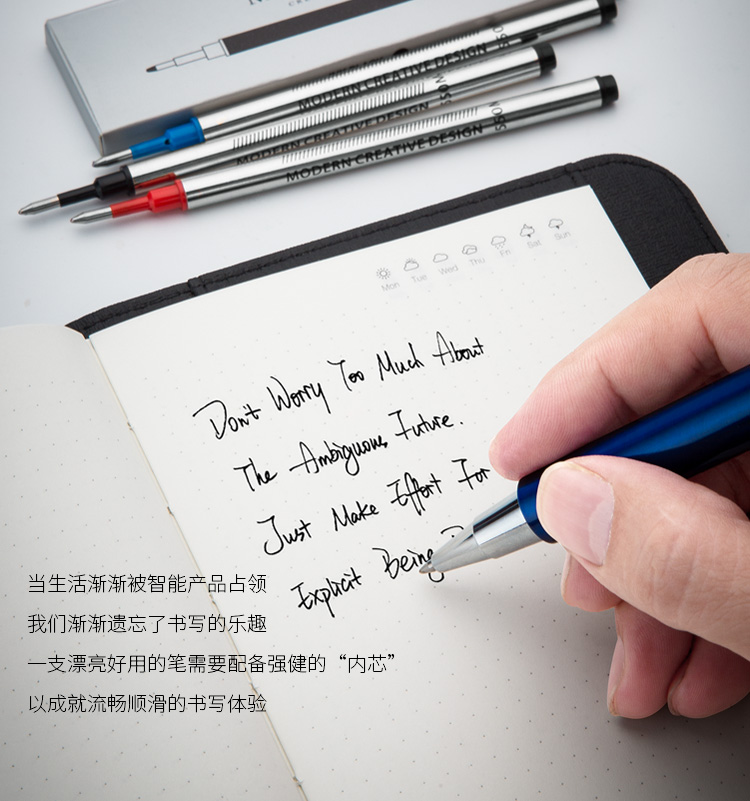 MODERN CREATIVE DESIGN
MODERN CREATIVE DESIGN
MODERN CREATIVE DESIGN
Mon Tue Wed Thu Fri Sat Sun
Don't Worry Too Much About
The Ambiguous Future.
Just Make Effort For
Explicit Being
当生活渐渐被智能产品占领
我们渐渐遗忘了书写的乐趣
一支漂亮好用的笔需要配备强健的“内芯”
以成就流畅顺滑的书写体验